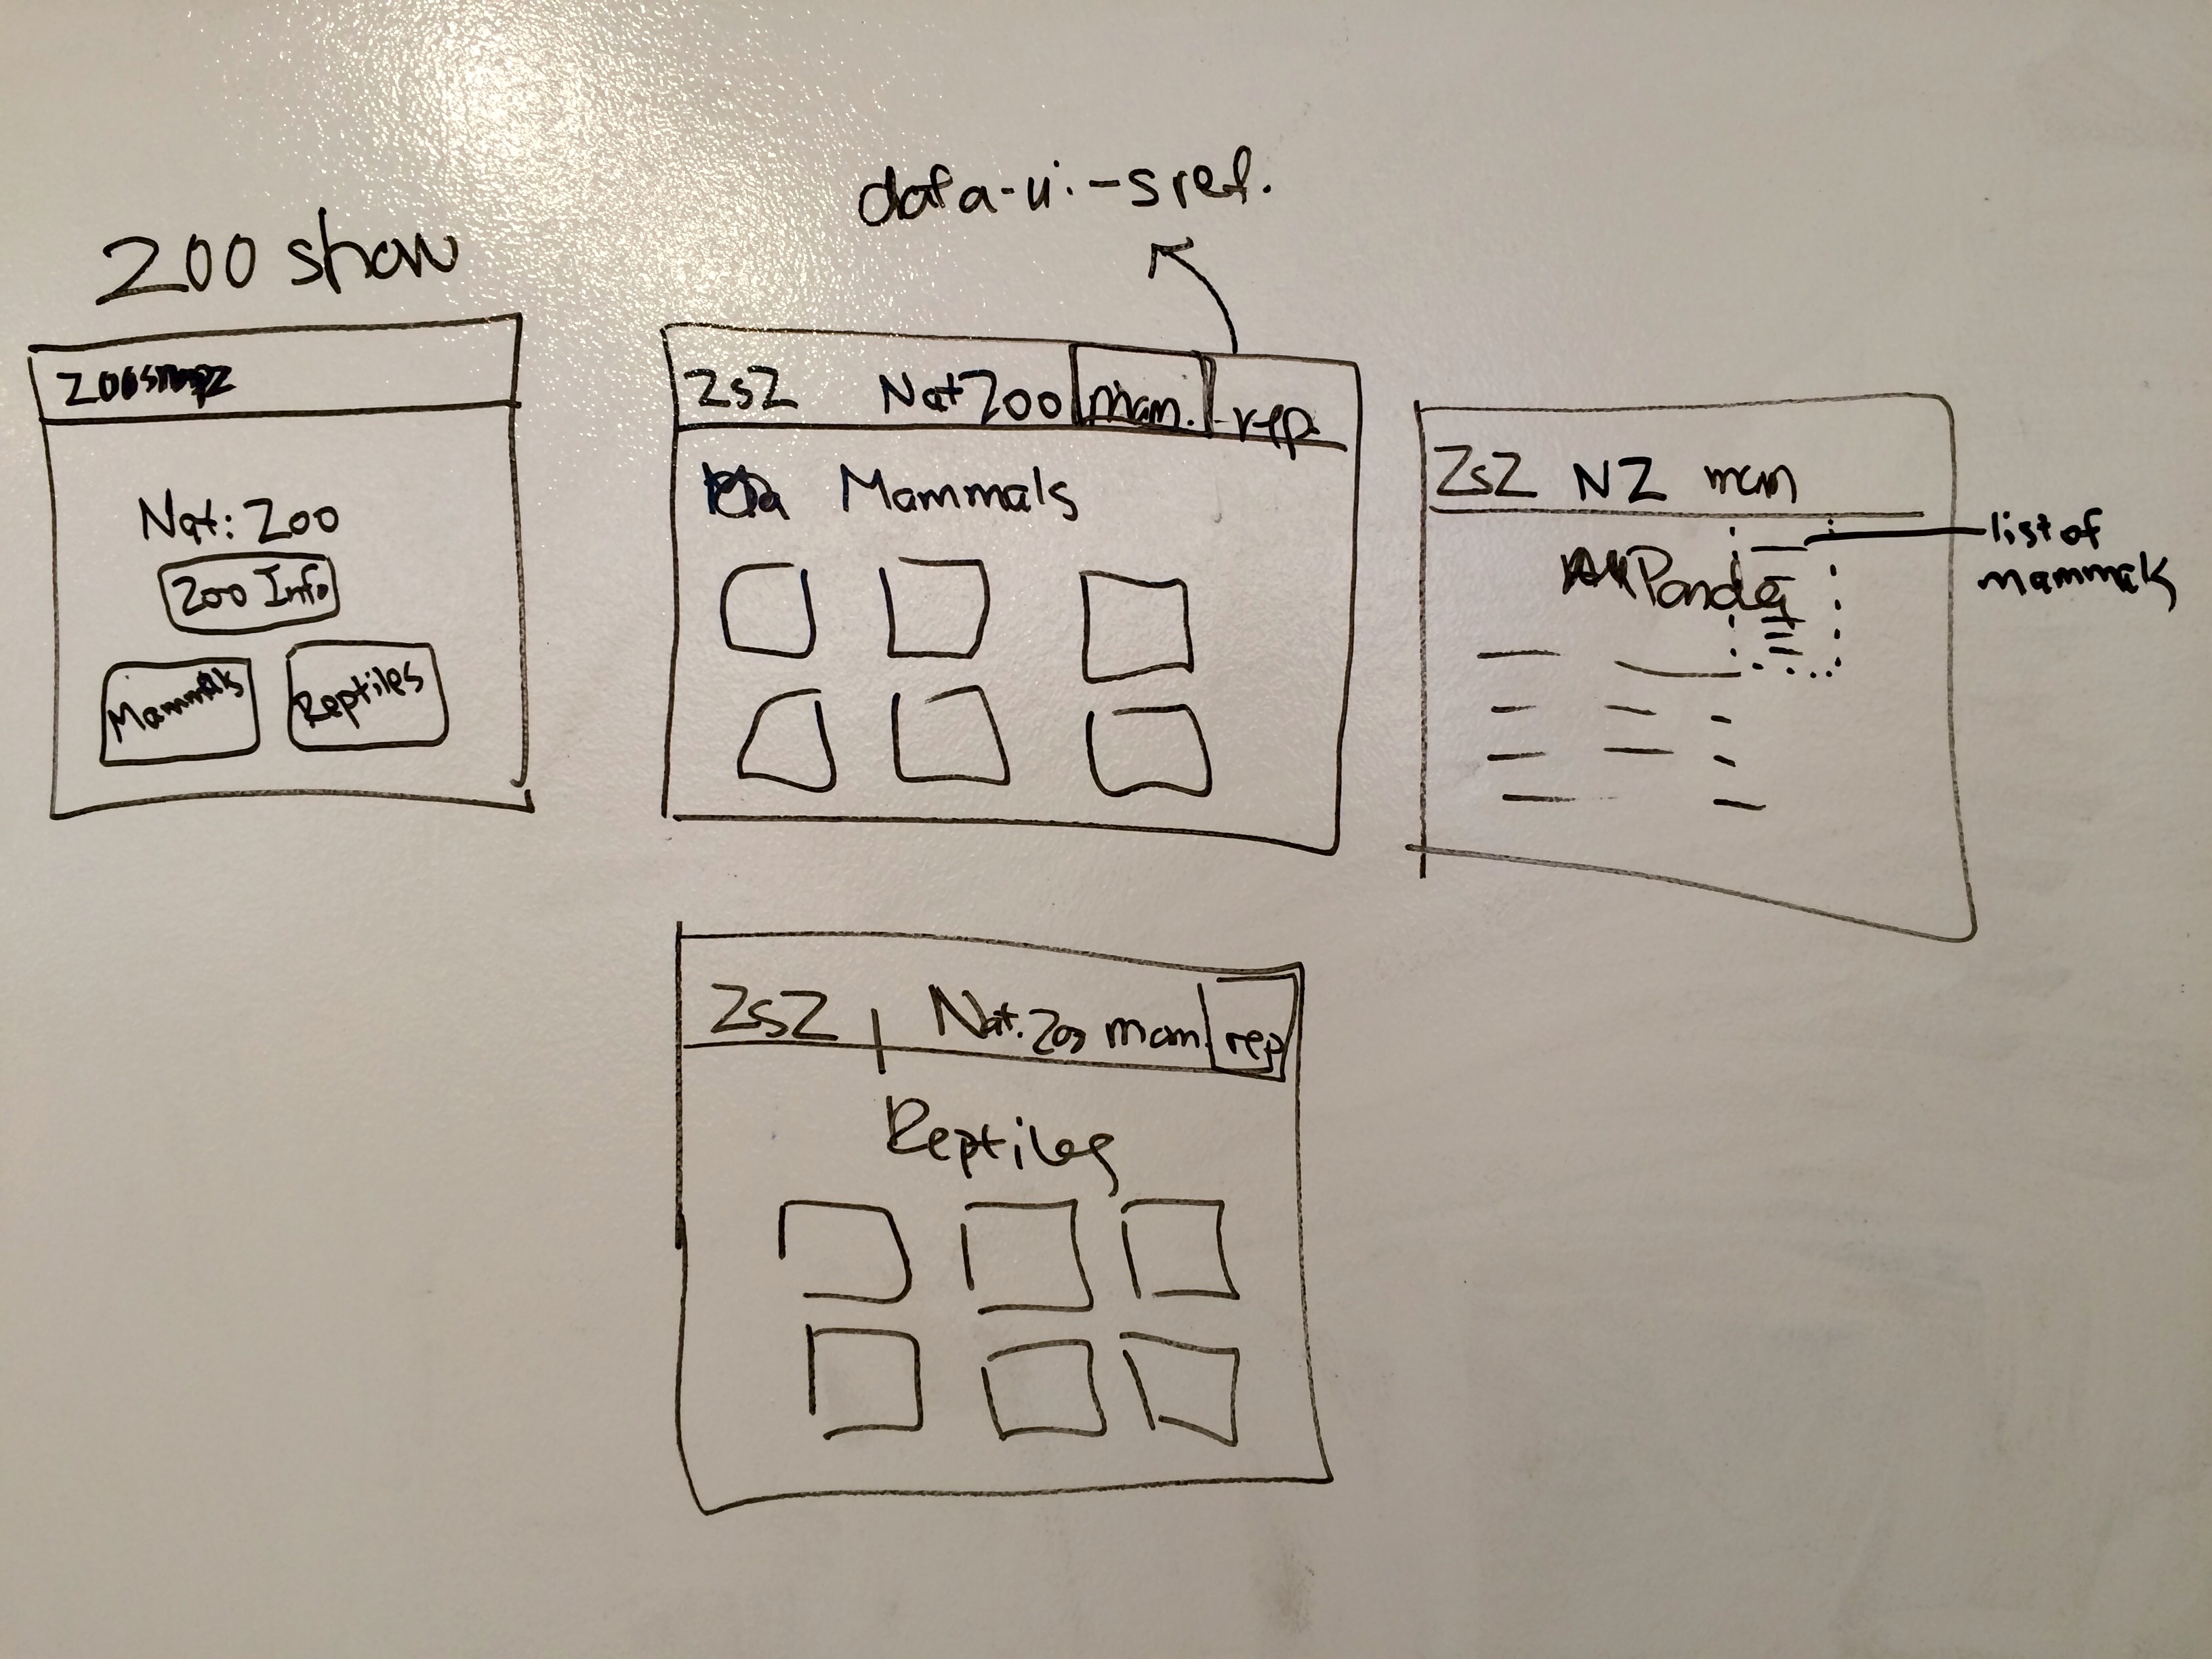 data-ui-sref.
Zoo show
zoosnapz
Nat: Zoo
Zoo Info
Mammals
Reptiles
ZsZ Nat Zoo mam. rep.
Mammals
ZsZ NZ mam
Panda
list of
mammals
ZsZ Nat. Zoo mam. rep
Reptiles